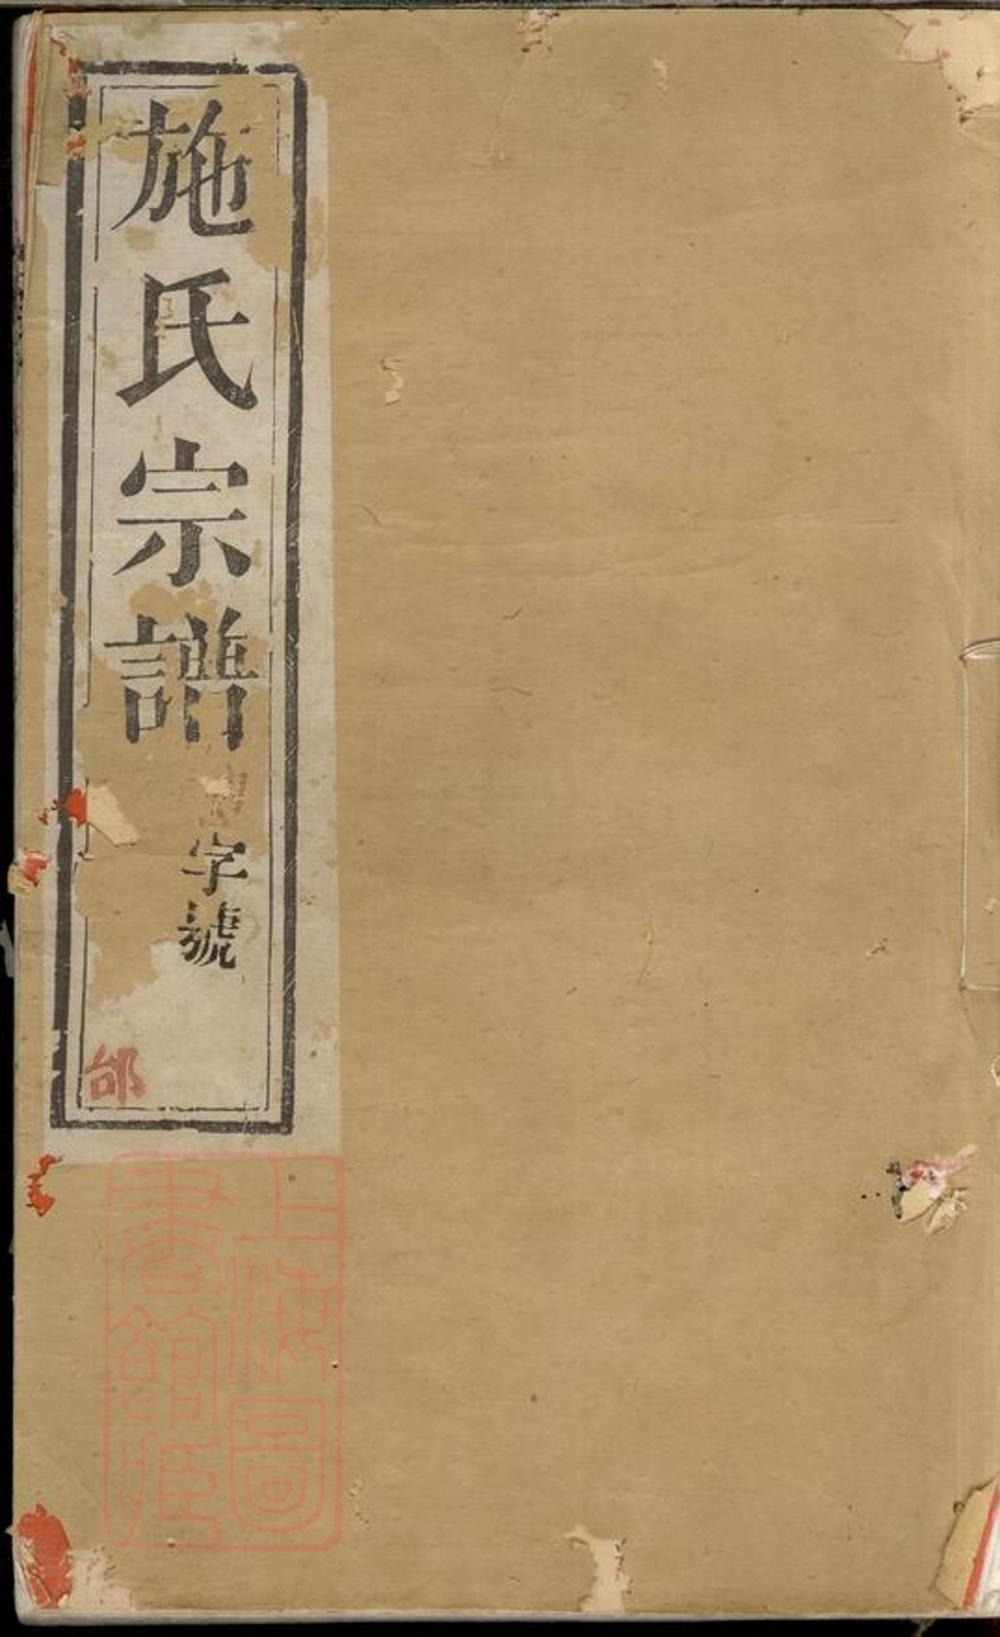 施氏宗譜
字號
邰
上海圖
書館藏